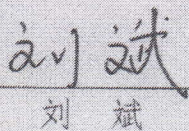 刘斌
刘 斌